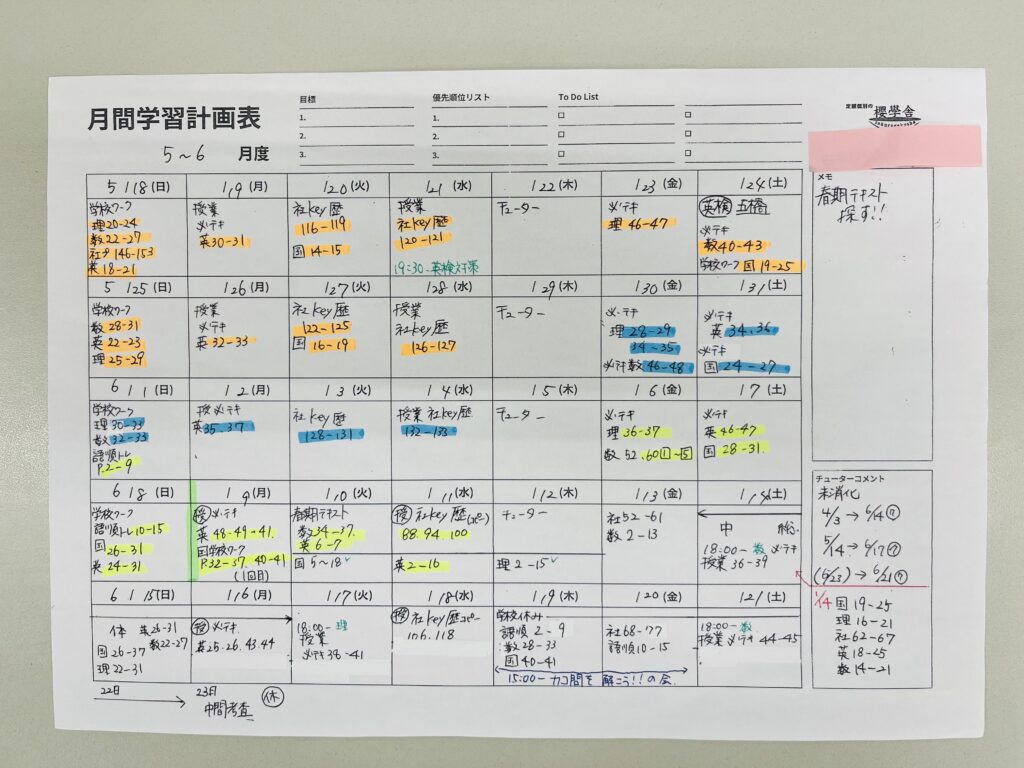 月間学習計画表
5～6 月度
目標
1.
2.
3.
優先順位リスト
1.
2.
3.
To Do List
定額個別の
櫻學舎
5 / 18 (日)
/ 19 (月)
/ 20 (火)
/ 21 (水)
/ 22 (木)
/ 23 (金)
/ 24 (土)
学校ワーク
理20-24
数22-27
社プ146-153
英18-21
授業
必テキ
英30-31
社key歴
116-119
国14-15
授業
社key歴
120-121
19:30-英検対策
チューター
必テキ
理46-47
英検 五橋
必テキ
数40-43
学校ワーク 国19-25
5 / 25 (日)
/ 26 (月)
/ 27 (火)
/ 28 (水)
/ 29 (木)
/ 30 (金)
/ 31 (土)
学校ワーク
数28-31
英22-23
理25-29
授業
必テキ
英32-33
社key歴
122-125
国16-19
授業
社key歴
126-127
チューター
必テキ
理28-29
34-35
必テキ数46-48
必テキ
英34.36
必テキ
国24-27
6 / 1 (日)
/ 2 (月)
/ 3 (火)
/ 4 (水)
/ 5 (木)
/ 6 (金)
/ 7 (土)
学校ワーク
理30-33
数32-33
語順トレ
P.2-9
授 必テキ
英35.37
社key歴
128-131
授業 社key歴
132-133
チューター
必テキ
理36-37
数52.60①～⑤
必テキ
英46-47
国28-31.
6 / 8 (日)
/ 9 (月)
/ 10 (火)
/ 11 (水)
/ 12 (木)
/ 13 (金)
/ 14 (土)
学校ワーク
語順トレ10-15
国26-31
英24-31
授 必テキ
英48-49-41.
国学校ワーク
P.32-37. 40-41
(1回目)
春期テキスト
数34-37.
英6-7
国5～18✓
授 社key歴(コピー)
88.94.100
英2-16
チューター
理2-15✓
社52-61
数2-13
中 総
18:00-数 必テキ
授業36-39
6 / 15 (日)
/ 16 (月)
/ 17 (火)
/ 18 (水)
/ 19 (木)
/ 20 (金)
/ 21 (土)
体 英26-31
数22-27
国26-37
理22-31
授 必テキ
英25.26.43.44
18:00-理
授業
必テキ38-41
授 社key歴コピー
106.118
学校休み
語順2-9
数28-33
国40-41
社68-77
語順10-15
15:00-カコ問を解こう!!の会.
18:00-数
授業 必テキ44-45
22日
23日
中間考査
休
メモ
春期テキスト
探す!!
チューターコメント
未消化
4/3→6/14⑦
5/14→6/17⑦
(5/23)→6/21⑦
国19-25
理16-21
社62-67
英18-25
数14-21